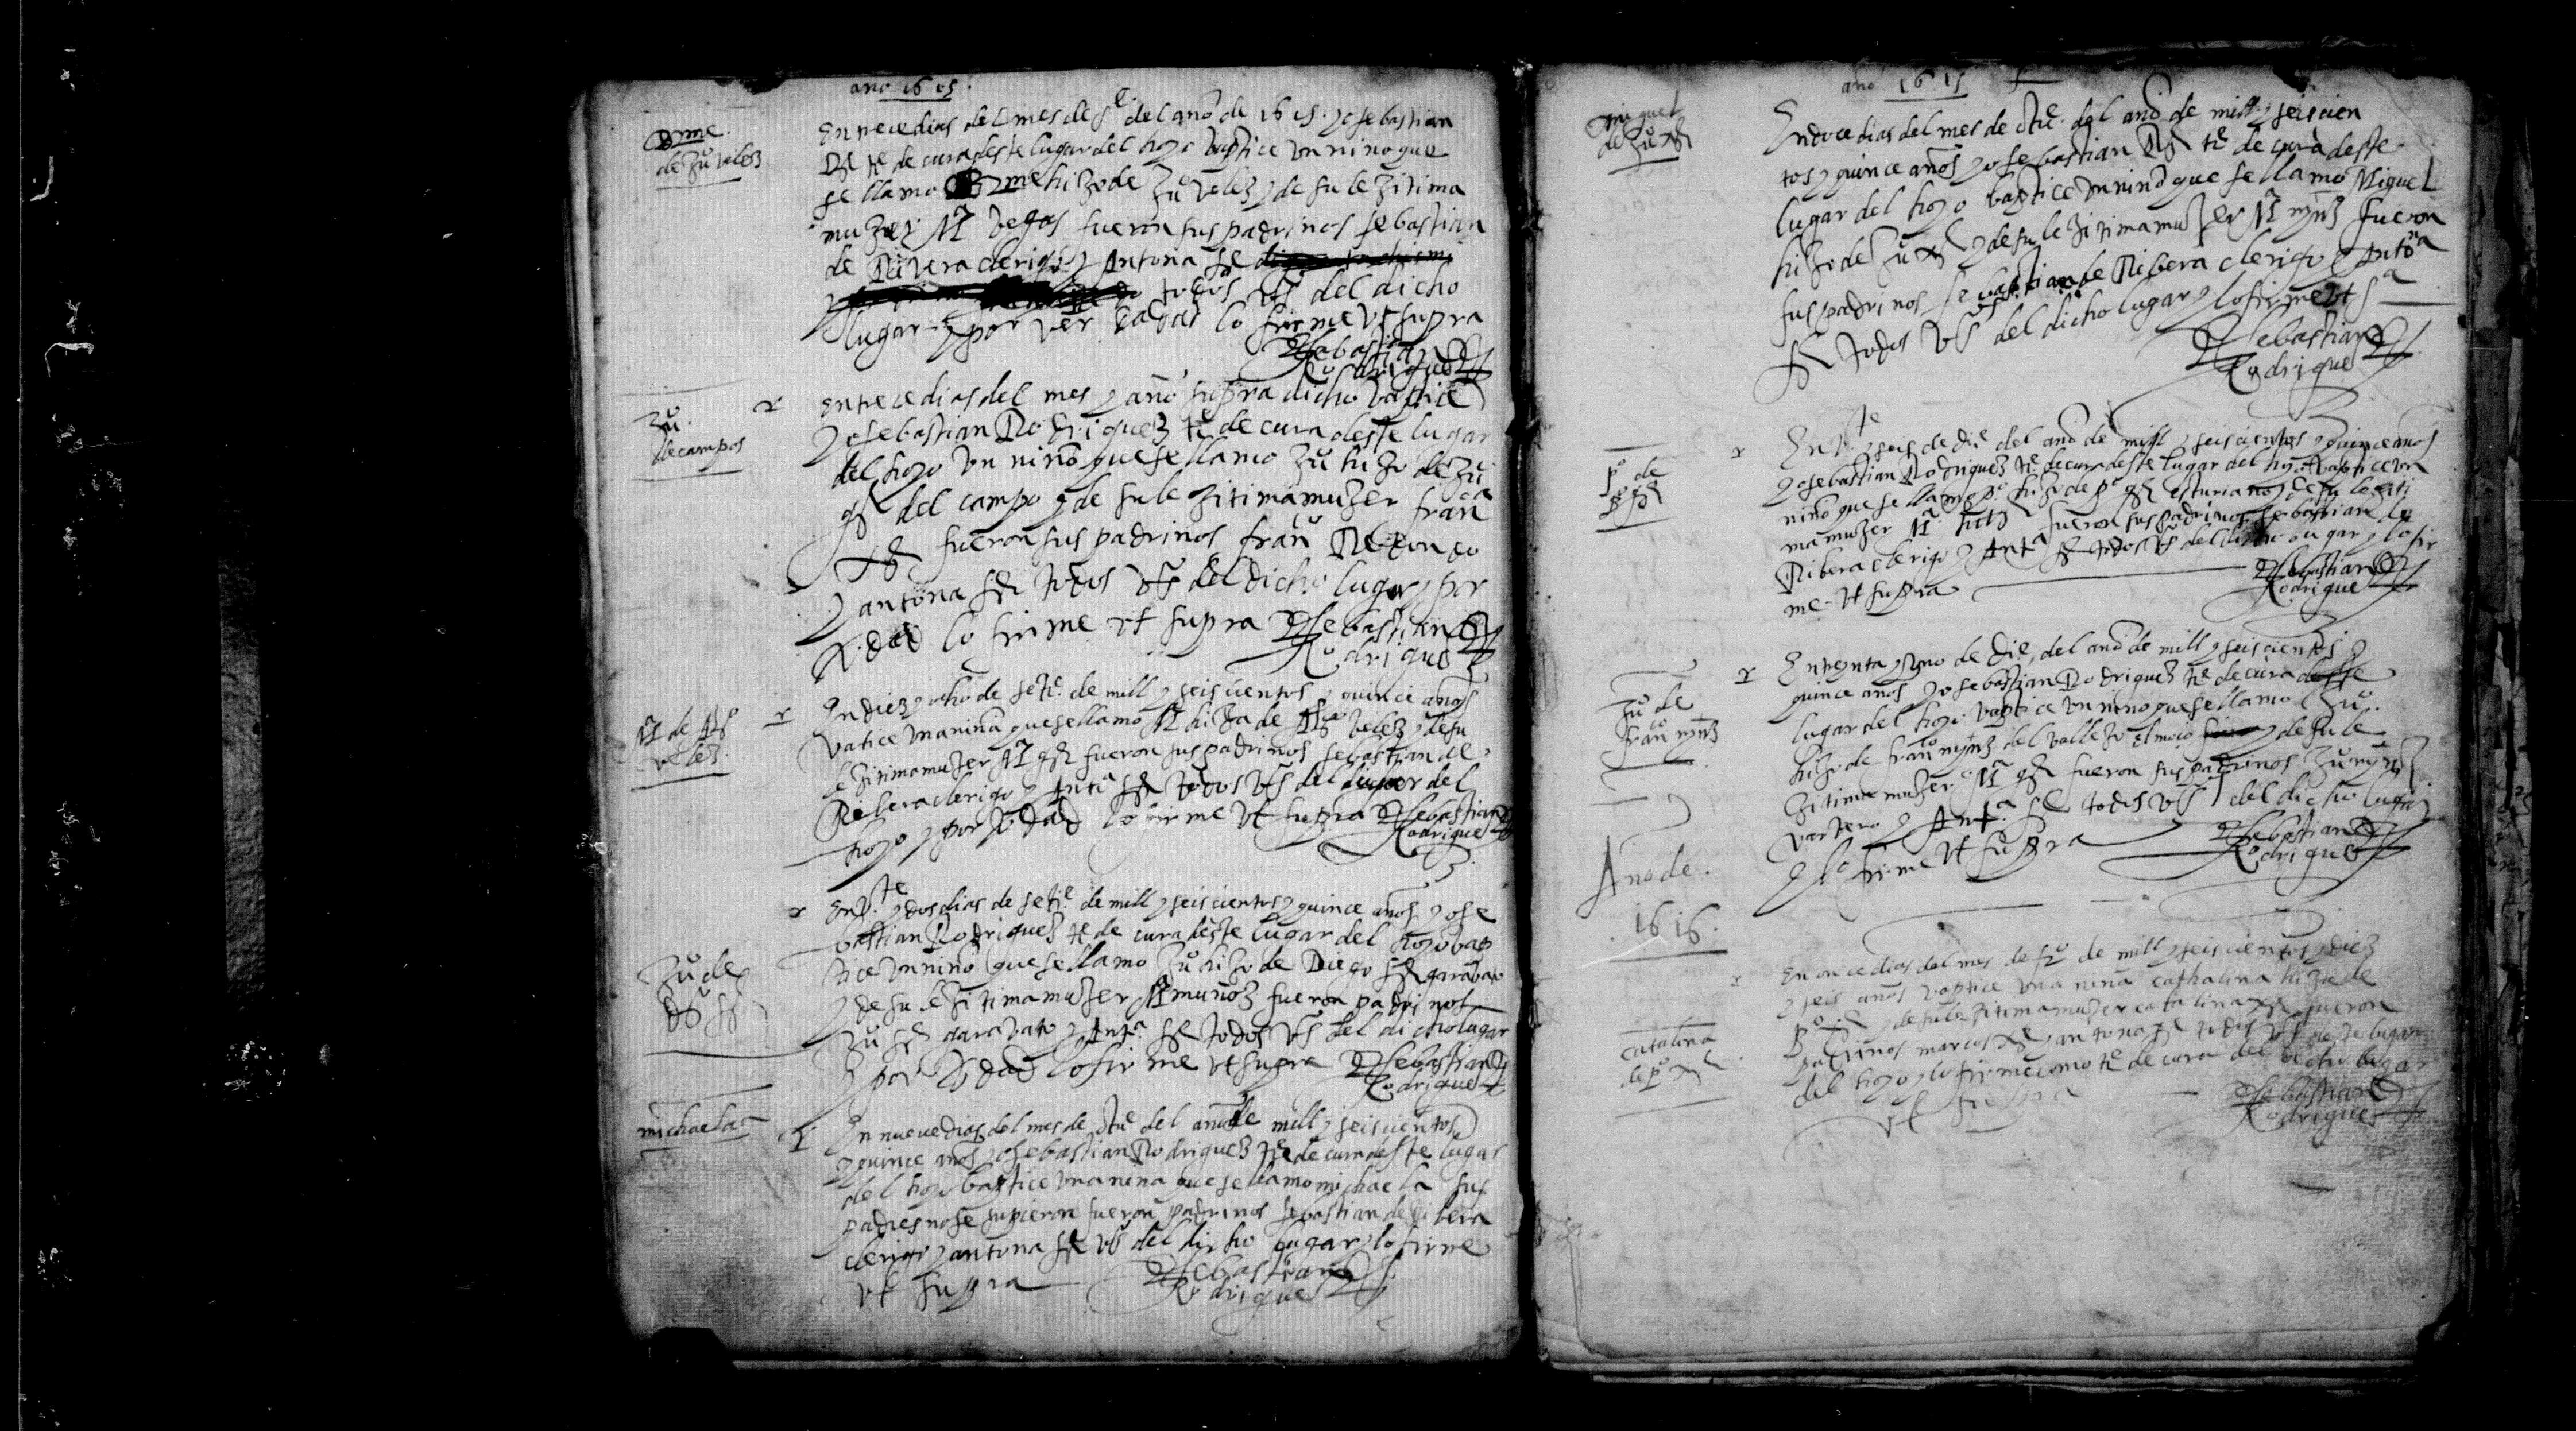 año 1615.
Bme.
de Juº velez
En trece dias del mes de se. del año de 1615. yo sebastian
Rs te de cura deste lugar del hoyo baptice un niño que
se llamo Bme hizo de Juº velez y de su lezitima
muzer Mª vegas fueron sus padrinos sebastian
de Rivera clerigo y Antona
todos vs del dicho
lugar y por ver dadas lo firme vt supra
Sebastian
Rodriguez
Juº
de campos
En trece dias del mes y año supra dicho baptice
yo sebastian Rodriguez te de cura deste lugar
del hoyo un niño que se llamo Juº hizo de Juº
gs del campo y de su lezitima muzer franca
fueron sus padrinos franº Redondo
y antona ss todos vs del dicho lugar y por
vdad lo firme vt supra Sebastian
Rodriguez
Mª de Alº
velez
En diez y ocho de sete. de mill y seiscientos y quince años
vatice una niña que se llamo Mª hiza de velez y de su
lezitima muzer Mª gs fueron sus padrinos sebastian de
Ribera clerigo y Antª ss todos vs del lugar del
hoyo y por vdad lo firme vt supra Sebastian
Rodriguez
Juº de
dº ss
En vte y dos dias de sete. de mill y seiscientos y quince años yo se
bastian Rodriguez te de cura deste lugar del hoyo bap
tice un niño que se llamo Juº hizo de Diego ss garabato
y de su lezitima muzer Mª muñoz fueron padrinos
Juº ss garavato y Antª ss todos vs del dicho lugar
y por vdad lo firme vt supra Sebastian
Rodriguez
michaela
En nueve dias del mes de otue del año de mill y seiscientos
y quince años yo sebastian Rodriguez te de cura deste lugar
del hoyo baptice una niña que se llamo michaela sus
padres no se supieron fueron padrinos sebastian de Ribera
clerigo y antona ss vs del dicho lugar y lo firme
vt supra Sebastian
Rodriguez
año 1615
miguel
de Juº
En doce dias del mes de otue. del año de mill y seiscien
tos y quince años yo sebastian Rs te de cura deste
lugar del hoyo baptice un niño que se llamo Miguel
hizo de Juº y de su lezitima muzer Mª mynz fueron
sus padrinos sebastian de Ribera clerigo y Antona
ss todos vs del dicho lugar y lo firme vt sª
Sebastian
Rodriguez
pº de
pº gs
En vte y seis de die del año de mill y seiscientos y quince años
yo sebastian Rodriguez te de cura deste lugar del hoyo baptice un
niño que se llamo pº hizo de pº gs esturiano y de su legiti
ma muzer Mª fueron sus padrinos sebastian de
Ribera clerigo y Antª ss todos vs del dicho lugar y lo fir
me vt supra Sebastian
Rodriguez
Juº de
franº mynz
En treynta y uno de die, del año de mill y seiscientos y
quince años yo sebastian Rodriguez te de cura deste
lugar del hoyo baptice un niño que se llamo Juº.
hizo de franº mynz del vallezo el moço y de su le
zitima muzer Mª gs fueron sus padrinos Juº mynz
y Antª. ss todos vs del dicho lugar
y lo firme vt supra Sebastian
Rodriguez
Año de.
1616.
catalina
de pº
En once dias del mes de de mill y seiscientos y diez
y seis años baptice una niña cathalina hiza de
pº y de su lezitima muzer catalina fueron
padrinos marcos y antona ss todos vs deste lugar
del hoyo y lo firme como te de cura del dicho lugar
vt supra Sebastian
Rodriguez